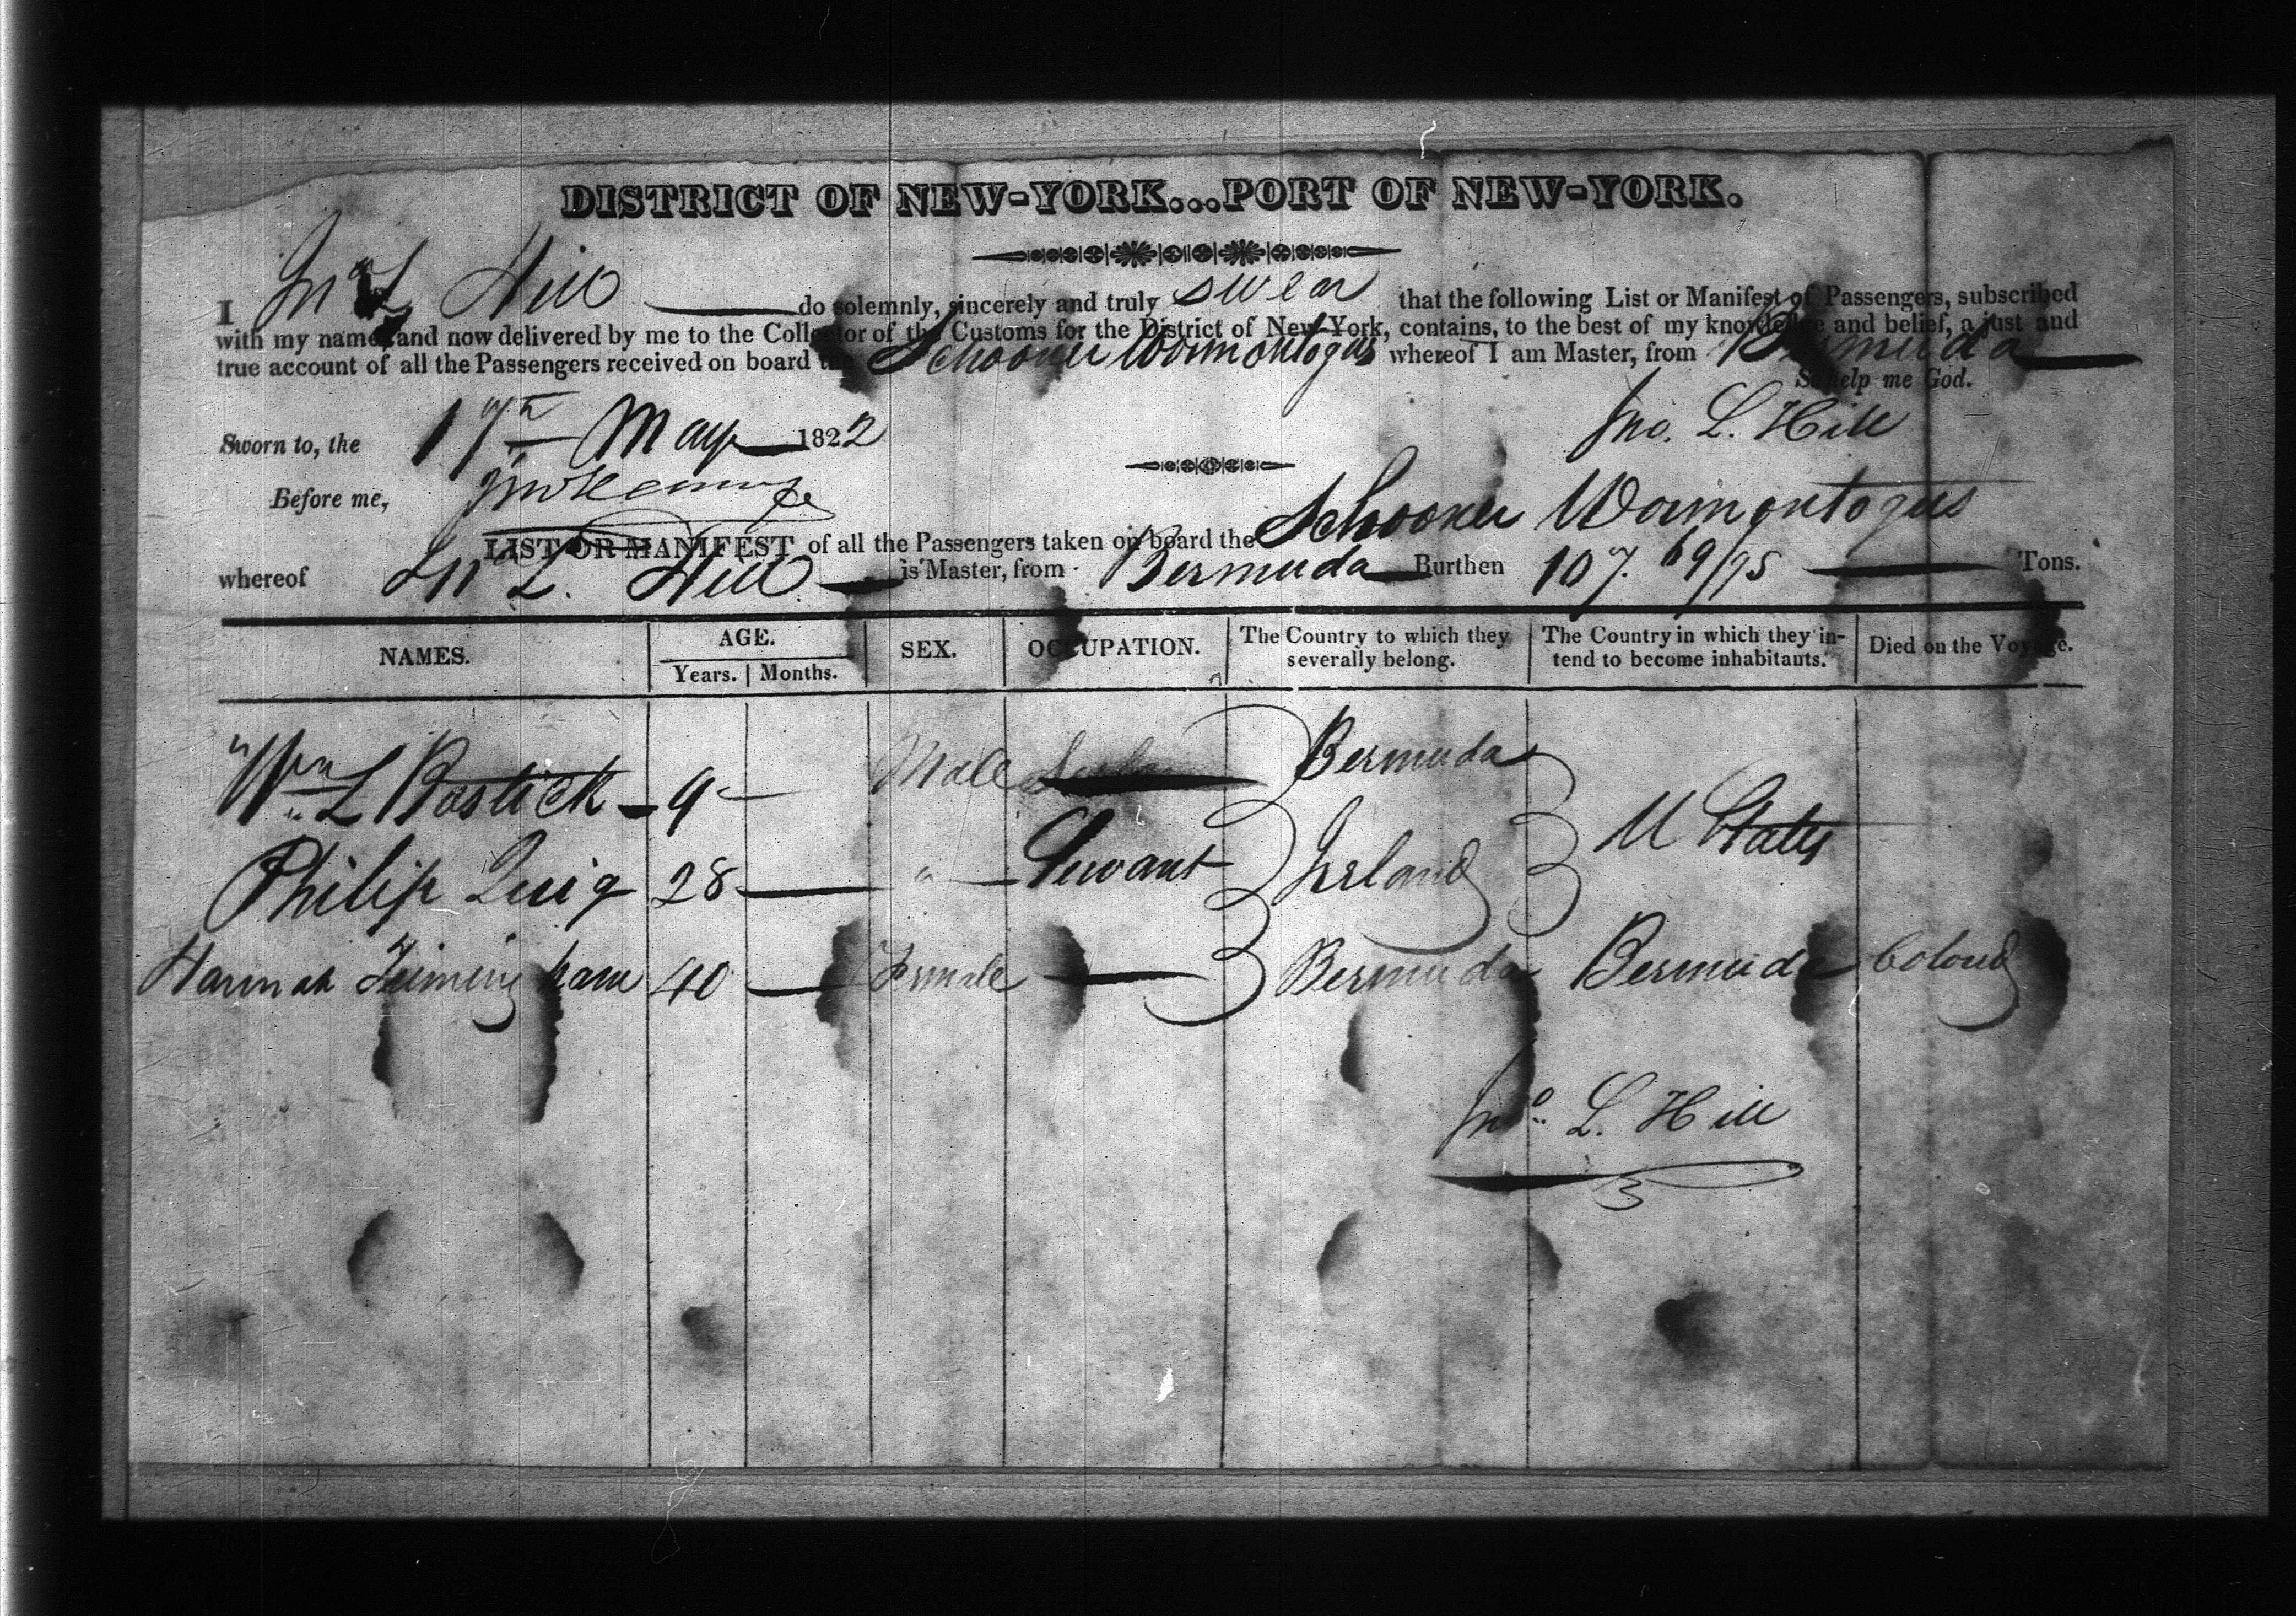 DISTRICT OF NEW-YORK...PORT OF NEW-YORK.
I Jno L Hill do solemnly, sincerely and truly swear that the following List or Manifest of Passengers, subscribed
with my name, and now delivered by me to the Collector of the Customs for the District of New-York, contains, to the best of my knowledge and belief, a just and
true account of all the Passengers received on board the Schooner Wormontogus whereof I am Master, from Bermuda
So help me God.
Jno. L. Hill
Sworn to, the 17th May 1822
Before me,
LIST OR MANIFEST of all the Passengers taken on board the Schooner Wormontogus
whereof Jno L. Hill is Master, from Bermuda Burthen 107. 69/95 Tons.
NAMES. AGE. SEX. OCCUPATION. The Country to which they severally belong. The Country in which they intend to become inhabitants. Died on the Voyage.
Years. Months.
Wm L Bostick 9 Male Bermuda
U States
Philip Quig 28 " Servant Ireland
Hannah 40 Female Bermuda Bermuda Coloud
Jno. L. Hill